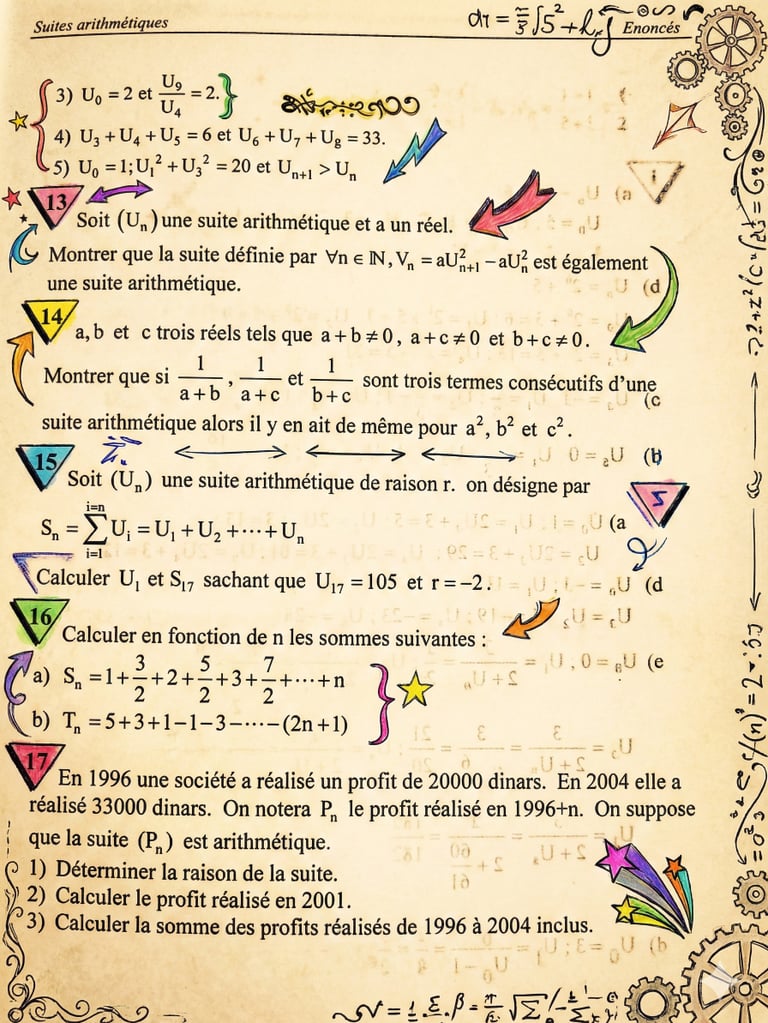 Suites arithmétiques
Enoncés
3) U₀ = 2 et U₉/U₄ = 2.
4) U₃ + U₄ + U₅ = 6 et U₆ + U₇ + U₈ = 33.
5) U₀ = 1; U₁² + U₃² = 20 et Uₙ₊₁ > Uₙ
13
Soit (Uₙ) une suite arithmétique et a un réel.
Montrer que la suite définie par ∀n ∈ ℕ, Vₙ = aU²ₙ₊₁ − aU²ₙ est également
une suite arithmétique.
14
a, b et c trois réels tels que a + b ≠ 0, a + c ≠ 0 et b + c ≠ 0.
Montrer que si 1/(a+b), 1/(a+c) et 1/(b+c) sont trois termes consécutifs d'une
suite arithmétique alors il y en ait de même pour a², b² et c².
15
Soit (Uₙ) une suite arithmétique de raison r. on désigne par
Sₙ = ∑_{i=1}^{i=n} Uᵢ = U₁ + U₂ + ⋯ + Uₙ
Calculer U₁ et S₁₇ sachant que U₁₇ = 105 et r = −2.
16
Calculer en fonction de n les sommes suivantes :
a) Sₙ = 1 + 3/2 + 2 + 5/2 + 3 + 7/2 + ⋯ + n
b) Tₙ = 5 + 3 + 1 − 1 − 3 − ⋯ − (2n + 1)
17
En 1996 une société a réalisé un profit de 20000 dinars. En 2004 elle a
réalisé 33000 dinars. On notera Pₙ le profit réalisé en 1996+n. On suppose
que la suite (Pₙ) est arithmétique.
1) Déterminer la raison de la suite.
2) Calculer le profit réalisé en 2001.
3) Calculer la somme des profits réalisés de 1996 à 2004 inclus.